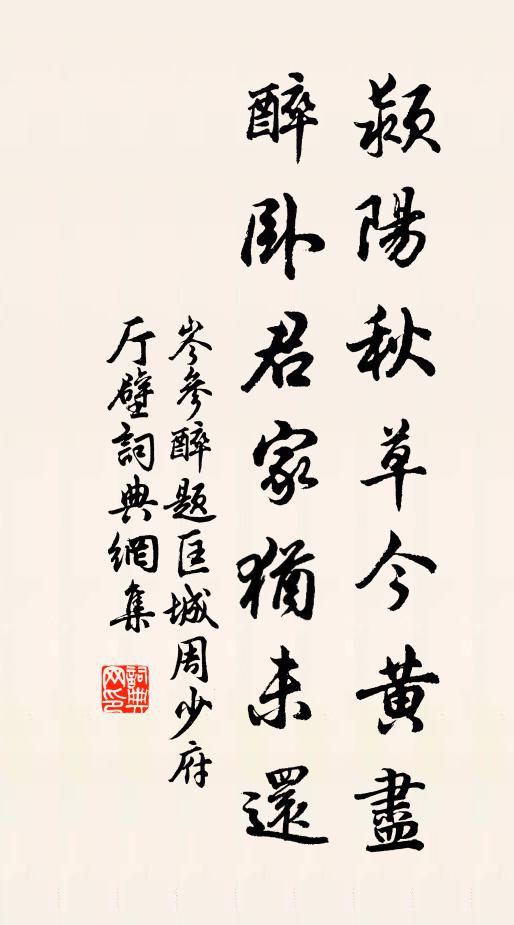 颍陽秋草今黄盡
醉卧君家猶未還
岑參醉題匡城周少府
厅壁詞典網集
詞典網印